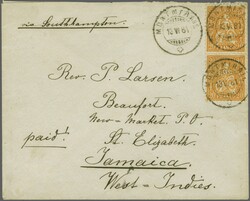 via Southhampton.
Rev. P. Larsen.
Beaufort.
New-Market P.O
paid!
St. Elizabeth
Jamaica.
West-Indies.